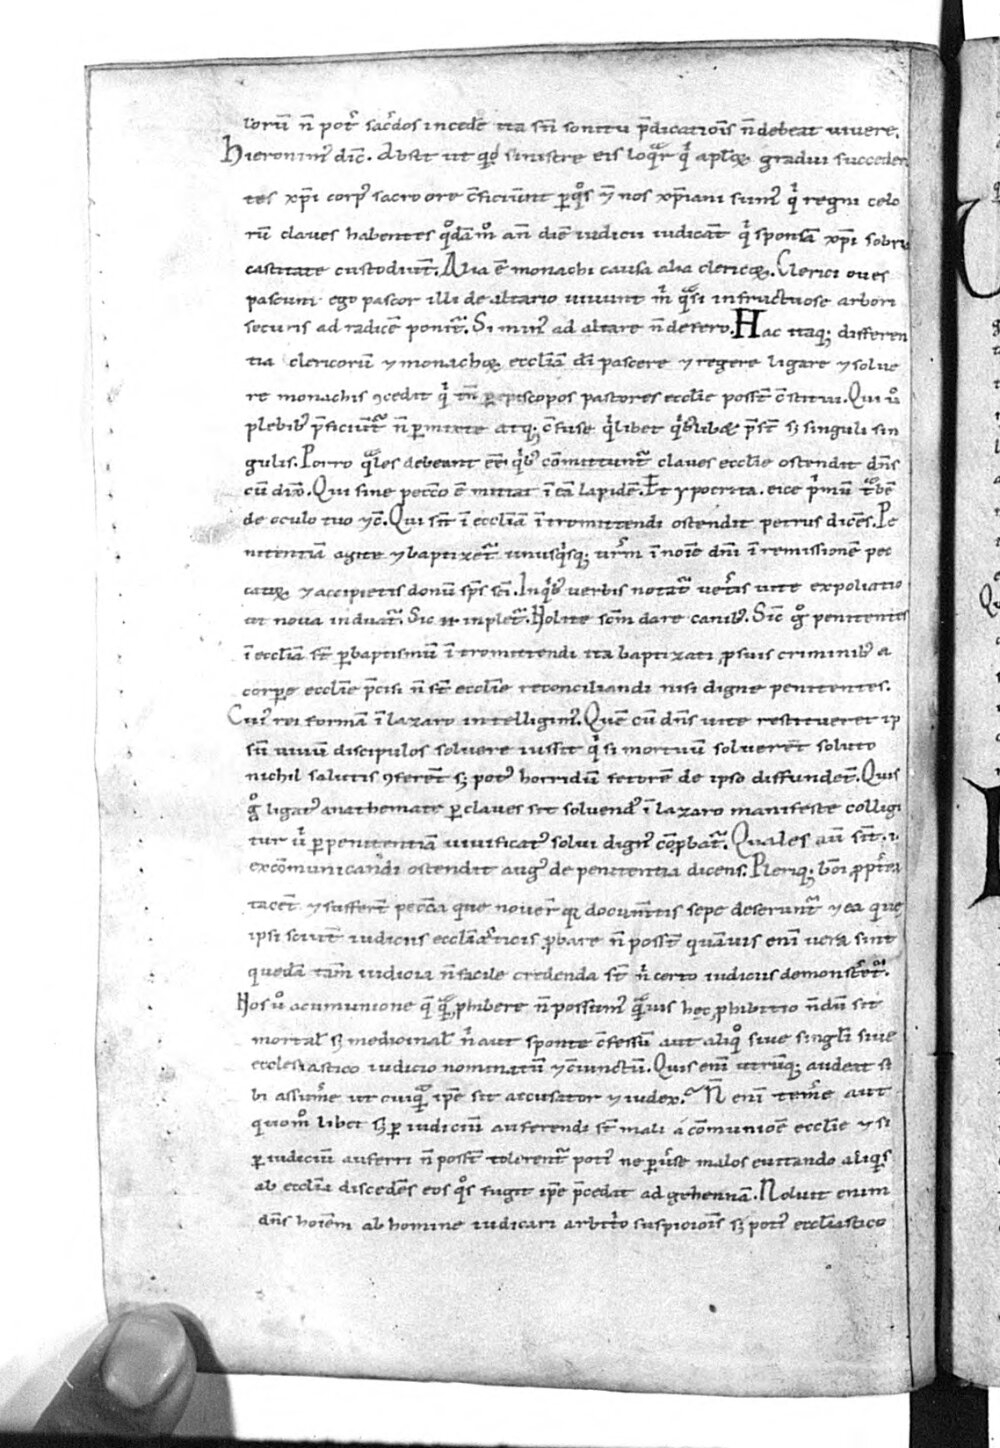 lorū n̄ pot᷑ sac̄dos incedē ita s̄n sonitu p̄dicatiōis n̄ debeat uiuere.
Hieronim᷒ dic̄. Absit ut qͥd sinistre eis loqͣr qͥ aplꝫ gradui succeden
tes xp̄i corp᷒ sacro ore c̄ficiūnt per qͦs ⁊ nos xp̄iani sum᷒ qͥ regni celo
rū claves habentes qͦdāmͦ an̄ diē iudicii iudicāt qͥ sponsā xp̄i sobria
castitate custodiūt. Alia ē monachi causa alia clericoꝝ. Clerici oues
pascunt ego pascor illi de altario uiuunt m̄ qͣsi infructuose arbori
securis ad radicē ponit᷑. Si mun᷒ ad altare n̄ defero. Hac itaq; differen
tia clericorū ⁊ monachoꝝ eccl̄iā dī pascere ⁊ regere ligare ⁊ solue
re monachis ꝯcedit qͥ tn̄ ꝑ episcopos pastores eccl̄ie poss̄t c̄stitui. Qui uͦ
plebib᷒ p̄ficiūt᷑ n̄ permixte atq; c̄fuse qͥlibet qͥbuslibꝫ p̄s̄t sꝫ singuli sin
gulis. Porro qͣles debeant eē qͥb᷒ cōmittunt᷑ claves eccl̄ie ostendit dn̄s
cū dix̄. Qui sine pecc̄o ē mittat ī eā lapidē. Et ypocrita. eice pͥmū trͣbē
de oculo tuo ⁊c̄. Qui sīt ī eccl̄iā ītromittendi ostendit petrus dicēs. Pe
nitentiā agite ⁊ baptizet᷑ unusqͥsq; ur̄m ī noīe dn̄i ī remissionē pec
catoꝝ ⁊ accipietis donū sp̄s sc̄i. In qͥb᷒ uerbis notat᷑ uet᷑is uite expoliatio
ut noua induat᷑. Sic inplet᷑. Nolite sc̄m dare canib᷒. Sic̄ gͦ penitentes
ī eccl̄iā s̄t ꝑ baptismū ītromittendi ita baptizati ꝓ suis criminib᷒ a
corpe eccl̄ie p̄cisi n̄ s̄t eccl̄ie reconciliandi nisi digne penitentes.
Cui᷒ rei formā ī lazaro intelligim᷒. Quē cū dn̄s uite restitueret ip
sū uiuū discipulos soluere iussit qͥ si mortuū soluerēt soluto
nichil salutis ꝯferēt sꝫ pot᷒ horridū fetorē de ipso diffundēt. Quis
gͦ ligat᷒ anathemate ꝑ claves sit soluend᷒ ī lazaro manifeste colligi
tur uͥ ꝑ penitentiā uiuificat᷒ solui dign᷒ cōprobat᷑. Quales aū s̄t. i.
excōmunicandi ostendit aug᷒ de penitentia dicens. Pleriq; boni ꝓpt᷑ea
tacēt ⁊ sufferūt pecc̄a que nouer̄ qꝛ documētis sepe deserunt᷑ ⁊ ea que
ipsi sciūt iudiciis eccl̄iasticis ꝓbare n̄ poss̄t quāuis enī uera sint
quedā tam̄ iudicia n̄ facile credenda s̄t n̄ certo iudiciis demonstret᷑.
Nos uͦ a cumunione qͣ qͣ ꝓhibere n̄ possum᷒ qͣuis hec ꝓhibitio n̄dū sit
mortal̄ sꝫ medicinal̄ n̄ aut sponte c̄fessū aut aliqͦ siue singl̄i siue
ecclesiastico iudicio nominatū ⁊ c̄uinctū. Quis enī utrūq; audeat si
bi assum̄e ut cuiqͣ ip̄e sit accusator ⁊ iudex. N̄ enī tem̄e aut
quomͦ libet sꝫ ꝑ iudiciū auferendi s̄t mali a cōmunioē eccl̄ie ⁊ si
ꝑ iudiciū auferri n̄ poss̄t tolerent᷑ poti᷒ ne ꝑuerse malos euitando aliqͥs
ab eccl̄ia discedēs eos qͦs fugit ip̄e p̄cedat ad gehennā. Noluit enim
dn̄s hoīem ab homine iudicari arbitrio suspiciōis sꝫ poti᷒ eccl̄iastico